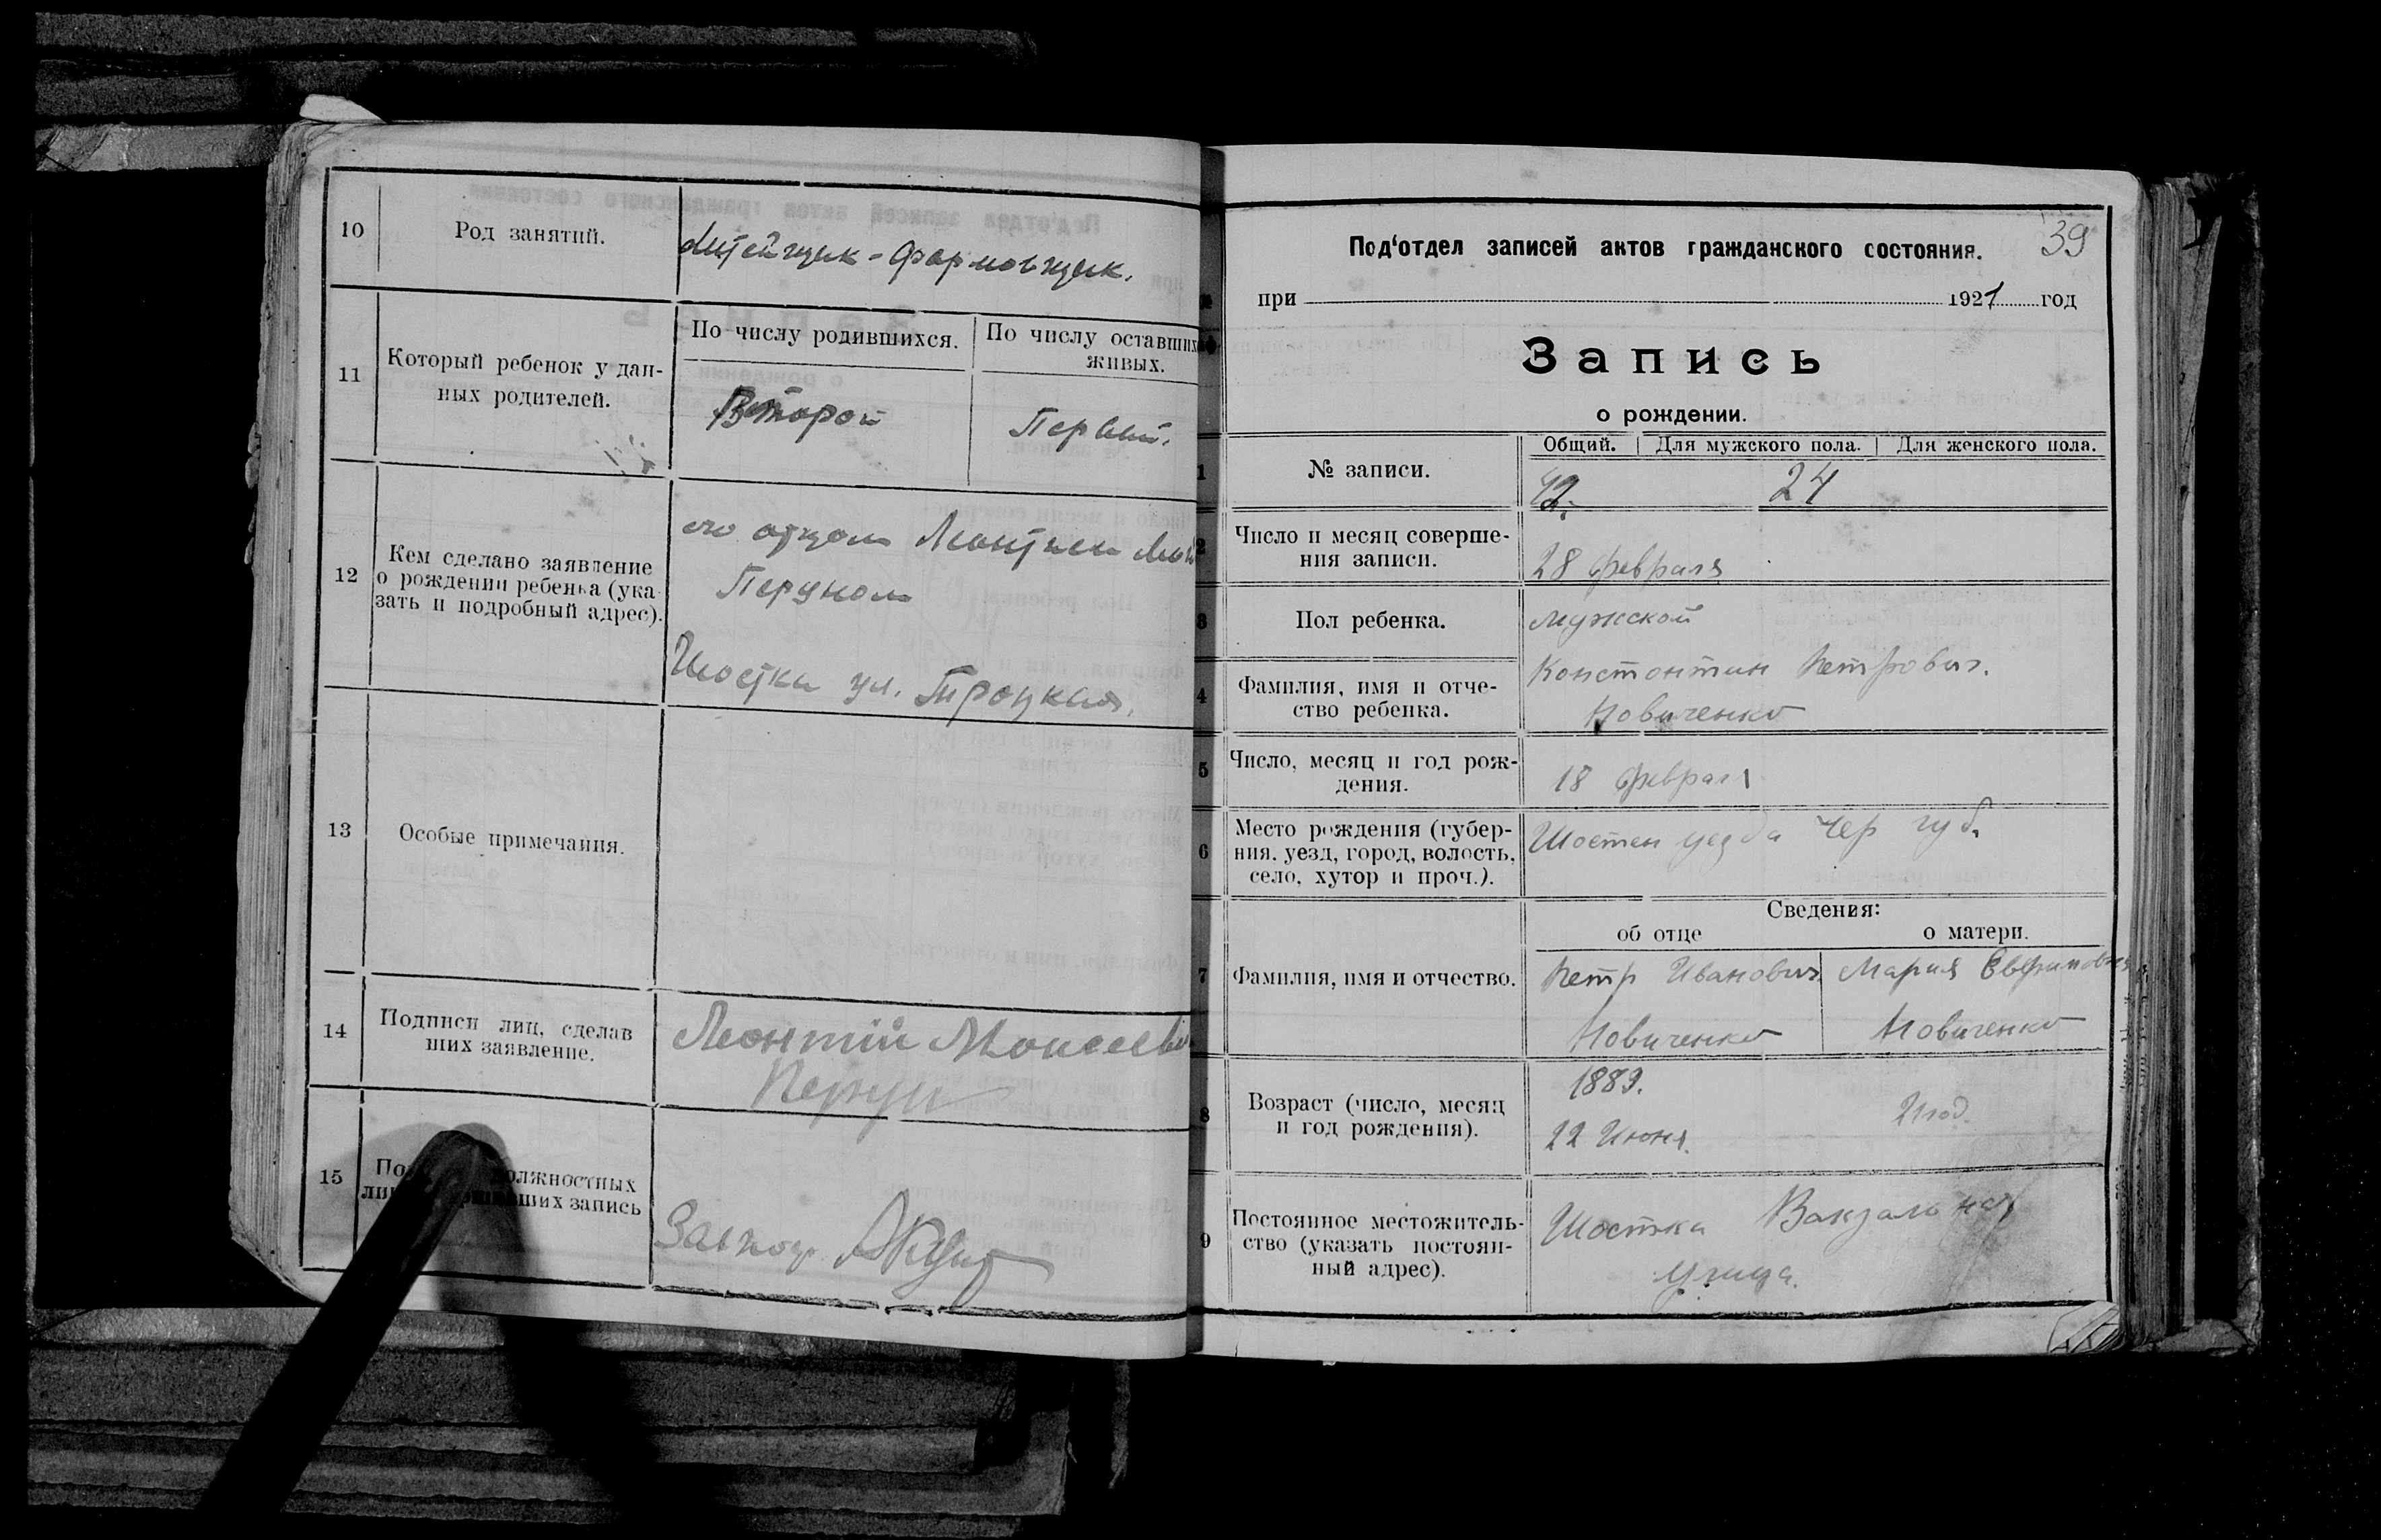 10
Род занятий.
Литейщик-формовщик.
11
Который ребенок у дан-
ных родителей.
По числу родившихся.
По числу оставших
живых.
Второй
Первый.
12
Кем сделано заявление
о рождении ребенка (ука
зать и подробный адрес).
его отцом Леонтием
Перуном
Шостка ул. Троцкая.
13
Особые примечания.
14
Подписи лиц, сделав
ших заявление.
Леонтій Моисееви
Перун
15
По олжностных
ли ших запись
Под'отдел записей актов гражданского состояния.
39
при 1921 год
Запись
о рождении.
1
№ записи.
Общий. Для мужского пола. Для женского пола.
42. 24
2
Число и месяц соверше-
ния записи.
28 февраля
3
Пол ребенка.
мужской
4
Фамилия, имя и отче-
ство ребенка.
Константин Петрович.
Новиченко
5
Число, месяц и год рож-
дения.
18 февраля
6
Место рождения (губер-
ния, уезд, город, волость,
село, хутор и проч.).
Шостен уезда Чер губ.
Сведения:
об отце
о матери.
7
Фамилия, имя и отчество.
Петр Иванович
Новиченко
Мария
Новиченко
8
Возраст (число, месяц
и год рождения).
1889.
22 Июня.
21 год.
9
Постоянное местожитель-
ство (указать постоян-
ный адрес).
Шостка Вакзальная
улица.